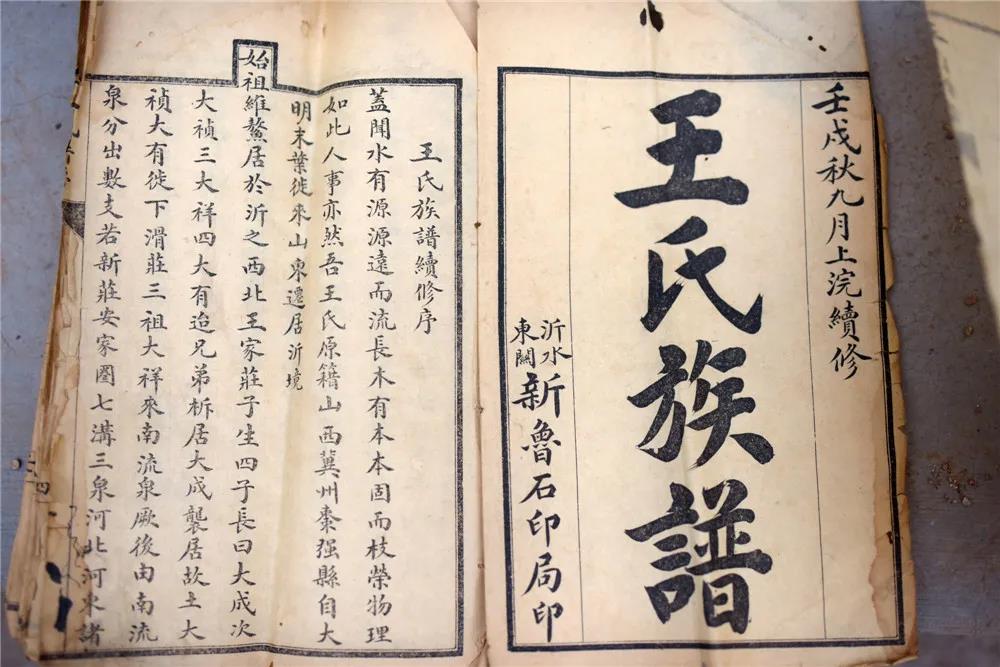 壬戌秋九月上浣續修
王氏族譜
沂水
東關
新魯石印局印
王氏族譜續修序
蓋聞水有源源遠而流長木有本本固而枝榮物理
如此人事亦然吾王氏原籍山西冀州棗强縣自大
明末葉徙來山東遷居沂境
始祖維鰲居於沂之西北王家莊子生四子長曰大成次
大禎三大祥四大有迨兄弟析居大成襲居故土大
禎大有徙下滑莊三祖大祥來南流泉厥後由南流
泉分出數支若新莊安家圈七溝三泉河北河東諸